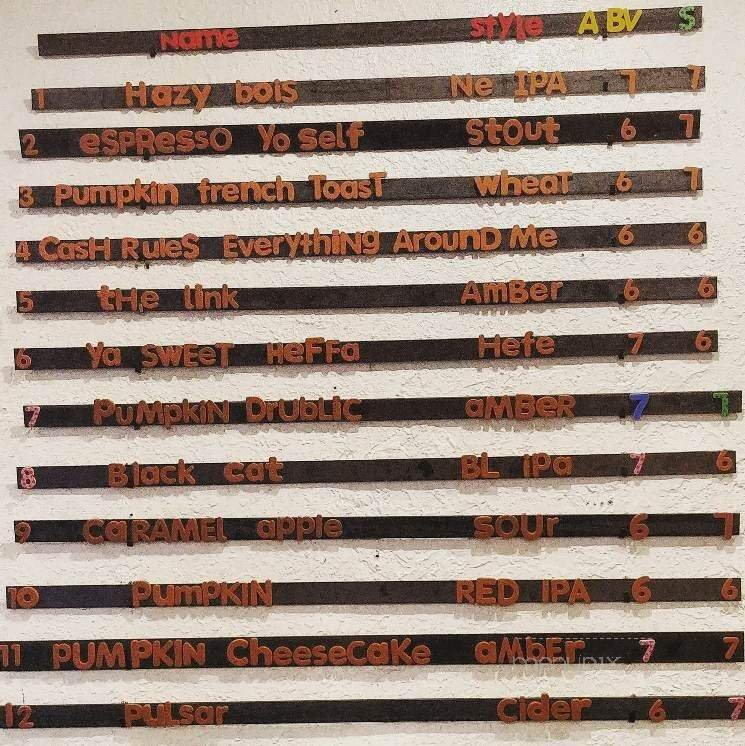 Name style ABV $
1 Hazy bois Ne IPA 7 7
2 eSPResso Yo self StOut 6 7
3 Pumpkin french ToasT wheaT 6 7
4 CasH RuleS EverythiNg ArounD Me 6 6
5 tHe link AmBer 6 6
6 Ya SWEeT HeFFa Hefe 7 6
7 PuMpkiN DrUbLic aMBeR 7 7
8 Black cat BL iPa 7 6
9 CaRAMEL apple SOUr 6 7
10 PumPKIN RED IPA 6 6
11 PUMPKIN CheeseCaKe aMbEr 7 7
12 PuLsar Cider 6 7